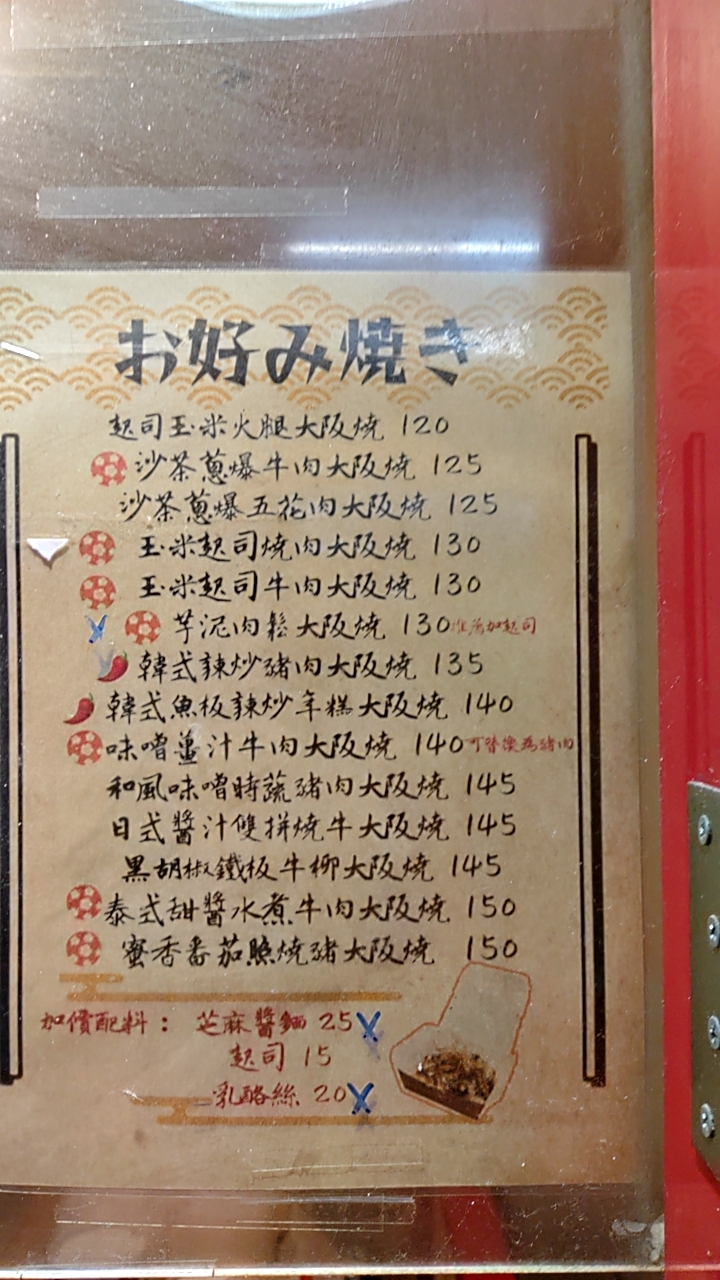 お好み焼き
起司玉米火腿大阪燒 120
沙茶蔥爆牛肉大阪燒 125
沙茶蔥爆五花肉大阪燒 125
玉米起司燒肉大阪燒 130
玉米起司牛肉大阪燒 130
芋泥肉鬆大阪燒 130 推薦加起司
韓式辣炒豬肉大阪燒 135
韓式魚板辣炒年糕大阪燒 140
味噌薑汁牛肉大阪燒 140 可替換為豬肉
和風味噌時蔬豬肉大阪燒 145
日式醬汁雙拼燒牛大阪燒 145
黑胡椒鐵板牛柳大阪燒 145
泰式甜醬水煮牛肉大阪燒 150
蜜香番茄燒豬大阪燒 150
加價配料： 芝麻醬麵 25
起司 15
乳酪絲 20